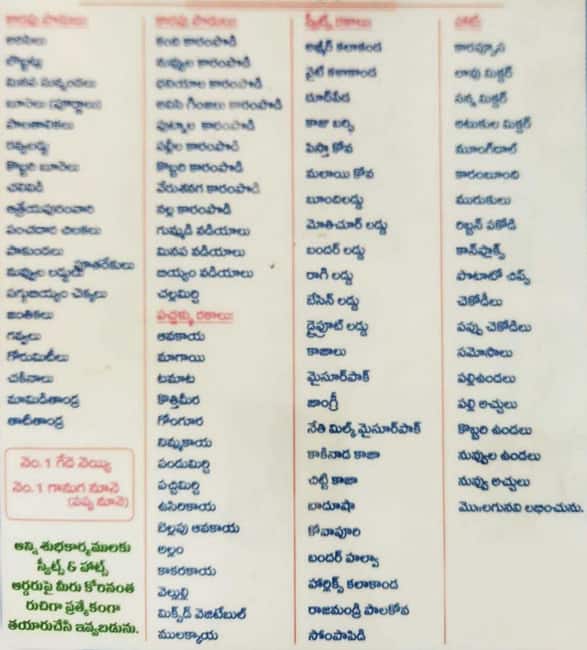 కారపు పొడులు
స్వీట్స్ రకాలు
హాట్స్
అరిసెలు
బొబ్బట్లు
మినప సున్నుండలు
బూరెలు (పూర్ణాలు)
పాలతాలికలు
రవ్వలడ్డు
కొబ్బరి బూరెలు
చలివిడి
ఆత్రేయపురంవారి
పంచదార చిలకలు
పాకుండలు
పూతరేకులు
నువ్వుల లడ్డులు
పగ్గుబియ్యం చెక్కలు
జంతికలు
గవ్వలు
గోరుమిటీలు
చకినాలు
మామిడితాండ్ర
తాటితాండ్ర
నెం.1 గేదె నెయ్యి
నెం.1 గానుగ నూనె
(పప్పు నూనె)
అన్ని శుభకార్యములకు
స్వీట్స్ & హాట్స్
ఆర్డరుపై మీరు కోరినంత
రుచిగా ప్రత్యేకంగా
తయారుచేసి ఇవ్వబడును.
కంది కారంపొడి
నువ్వుల కారంపొడి
ధనియాల కారంపొడి
అవిసె గింజలు కారంపొడి
పుట్నాల కారంపొడి
పల్లీల కారంపొడి
కొబ్బరి కారంపొడి
వేరుశనగ కారంపొడి
నల్ల కారంపొడి
గుమ్మడి వడియాలు
మినప వడియాలు
బియ్యం వడియాలు
చల్లమిర్చి
పచ్చళ్ళు రకాలు:
ఆవకాయ
మాగాయి
టమాట
కొత్తిమీర
గోంగూర
నిమ్మకాయ
పండుమిర్చి
పచ్చిమిర్చి
ఉసిరికాయ
బెల్లపు ఆవకాయ
అల్లం
కాకరకాయ
వెల్లుల్లి
మిక్స్‌డ్ వెజిటేబుల్
ములక్కాయ
అజ్మీర్ కలాకంద
వైట్ కలాకంద
దూద్‌పేడ
కాజు బర్ఫి
పిస్తా కోవ
మలాయి కోవ
బూందిలడ్డు
మోతిచూర్ లడ్డు
బందర్ లడ్డు
రాగి లడ్డు
బేసిన్ లడ్డు
డ్రైఫ్రూట్ లడ్డు
కాజాలు
మైసూర్‌పాక్
జాంగ్రీ
నేతి మిల్క్ మైసూర్‌పాక్
కాకినాడ కాజా
చిట్టి కాజా
బాదుషా
కోవాపూరి
బందర్ హల్వా
హార్లిక్స్ కలాకంద
రాజమండ్రి పాలకోవ
సోంపాపిడి
కారప్పూస
లావు మిక్చర్
సన్న మిక్చర్
అటుకుల మిక్చర్
మూంగ్‌దాల్
కారంబూంది
మురుకులు
రిబ్బన్ పకోడి
కాన్‌ఫ్లెక్స్
పొటాటో చిప్స్
చెకోడీలు
పప్పు చెకోడీలు
సమోసాలు
పల్లిఉండలు
పల్లి అచ్చులు
కొబ్బరి ఉండలు
నువ్వుల ఉండలు
నువ్వు అచ్చులు
మొ॥లగునవి లభించును.